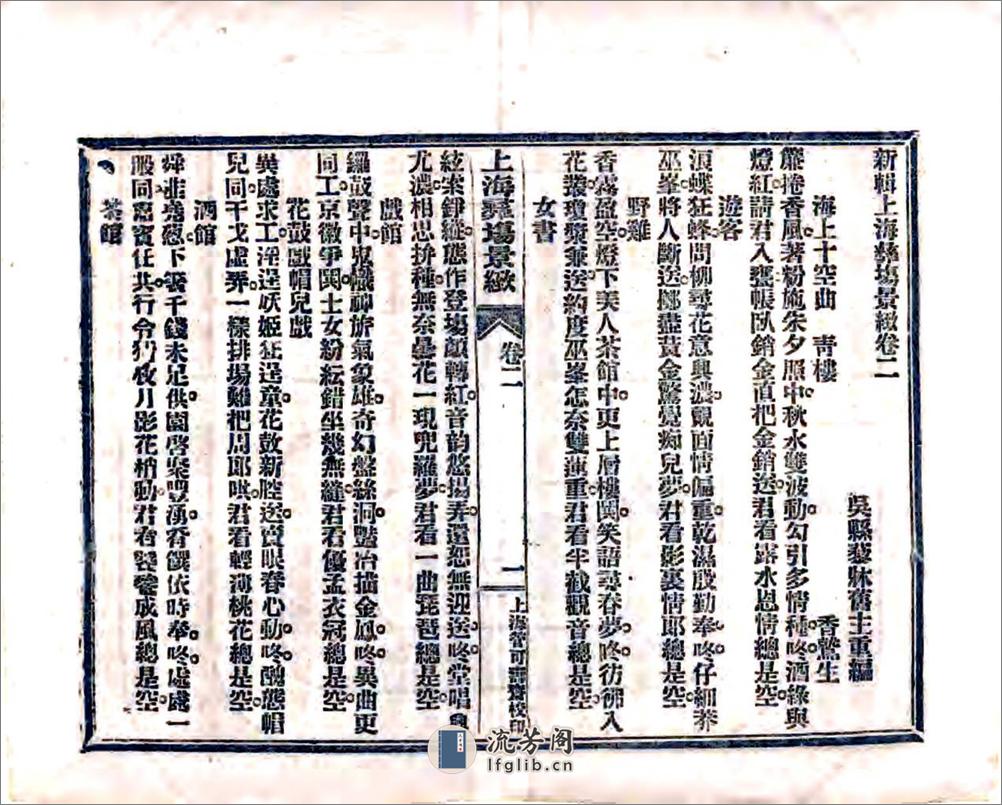 新輯上海彝塲景緻卷二
吳縣藜牀舊主重編
香鷺生
海上十空曲 青樓
簾捲香風著粉施朱夕照中秋水雙波動勾引多情種咚酒綠與
燈紅請君入甕帳臥銷金直把金銷送君看露水恩情總是空
遊客
浪蝶狂蜂問柳尋花意興濃覿面情偏重乾濕殷勤奉咚仔細莽
巫峯將人斷送擲盡黃金驚覺痴兒夢君看影裏情郎總是空
野雞
香霧盈空燈下美人茶館中更上層樓鬨笑語尋春夢咚彷彿入
花叢瓊漿兼送約度巫峯怎奈雙蓮重君看半截觀音總是空
女書
上海彝塲景緻
卷二
一
上海管可壽齋校印
絃索錚縱態作登場顏轉紅音韵悠揚弄還恕無迎送咚堂唱
尤濃相思拚種無奈曇花一現兜羅夢君看一曲琵琶總是空
戲館
鑼鼓聲中鬼幟神旂氣象雄奇幻盤絲洞豔冶描金鳳咚吳曲更
同工京徽爭鬨士女紛紜錯坐幾無縫君看優孟衣冠總是空
花鼓戲帽兒戲
異處求工淫逞妖姬狂逞童花鼓新腔送賣眼春心動咚醜態帽
兒同干戈虛弄一樣排場難把周郎哄君看輕薄桃花總是空
酒館
下箸千錢未足供園啓聚豐湧肴饌依時奉咚處處一
般同 賓任共行令 月影花梢動君看 成風總是空
茶館
流芳阁
lfglib.cn